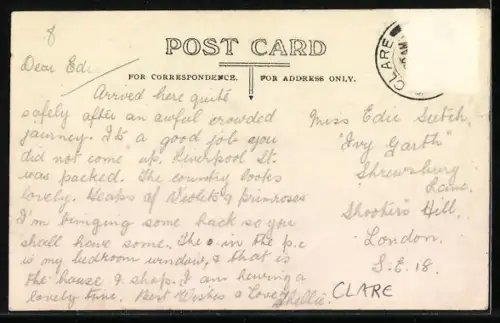 8
POST CARD
FOR CORRESPONDENCE.
FOR ADDRESS ONLY.
CLARE
AM
Dear Edi
Arrived here quite
safely after an awful crowded
journey. It's a good job you
did not come up, Liverpool St.
was packed. The country looks
lovely. Heaps of Violets & primroses
I'm bringing some back so you
shall have some. The o in the p.c
is my bedroom window, & that is
the house I stop. I am having a
lovely time. Best Wishes & Love
Nellie.
Miss Edie
"Ivy Garth"
Shrewsbury
Lane.
Shooters Hill,
London.
S.E.18.
CLARE